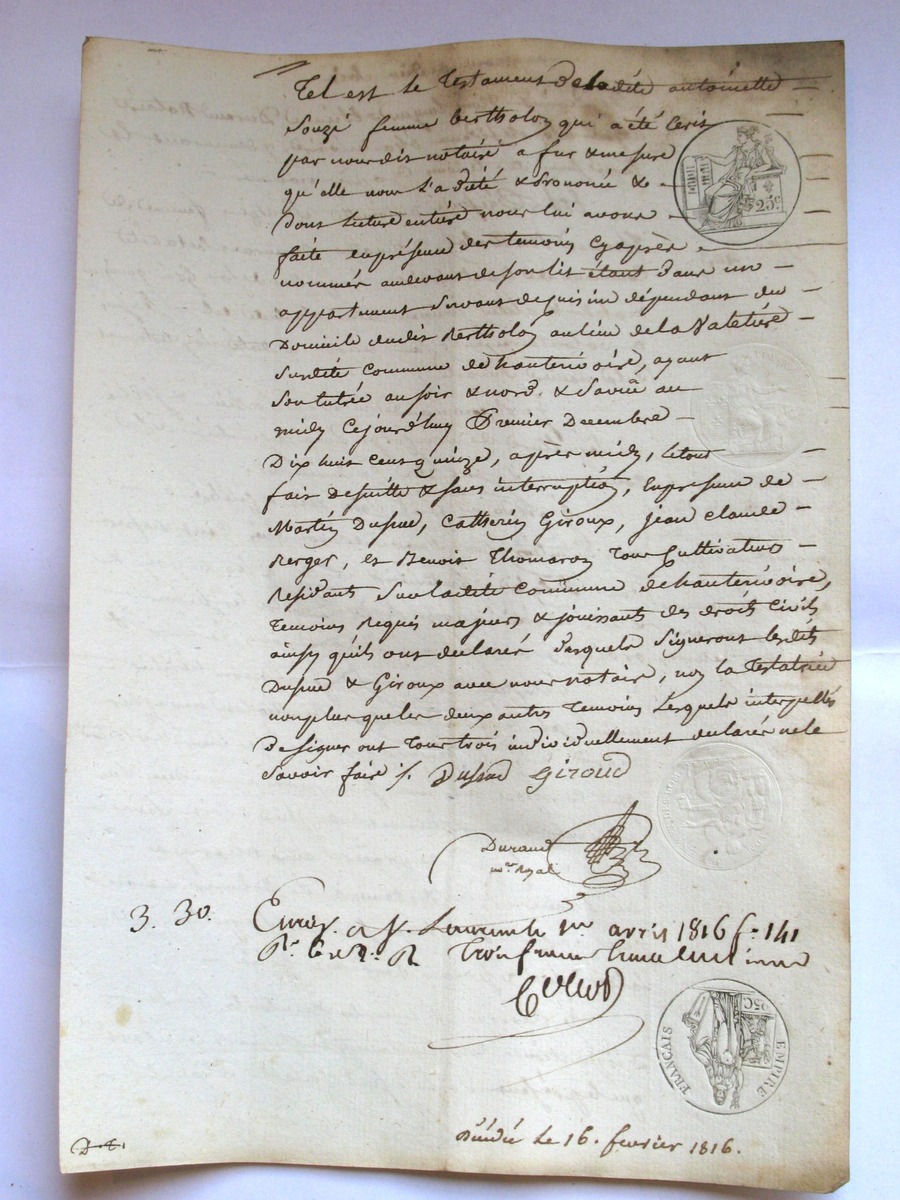 Tel est le Testament de ladite antoinette
Souzé femme bertholon qui a été Écris
par nous dis notaire a fur & mesure
qu'elle nous l'a dicté & prononcé &
dont lecture entière nous lui avons
faite en présence des temoins cy après
nommés au devant de son lit étant dans un
appartement servant de cuisine dépendant du
Domicile dudit Bertholon au lieu de la Valetière
Susdite Commune de hauterivoire, ayant
son entrée au soir & nord & au
midy Cejourd'huy Premier Decembre
Dix huit cent quinze, après midy, le tout
fait de suitte & sans interruption, En présence de
Martin Dussud, Catherin Giroux, jean claude
Berger, et Benoit Thomaron Tous Cultivateurs
Résidants Sur ladite Commune de hauterivoire,
Temoins Requis majeurs & jouissants des droits Civils
ainsy qu'ils ont déclaré desquels Signeront lesdits
Dussud & Giroux avec nous notaire, non la Testatrice
non plus que les deux autres Temoins Lesquels interpellés
De signer ont Tous trois individuellement déclarés ne le
Savoir faire ./. Dussud Giroud
25 c
Durand
no.re Royal
3. 30. avril 1816 f. 141
Trois francs
25 C
EMPIRE FRANÇAIS
Le 16. fevrier 1816.